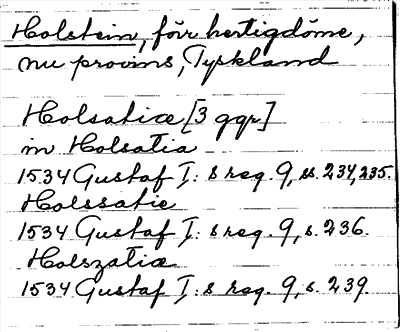 Holstein, förr hertigdöme,
nu provins, Tyskland
Holsatiæ [3 ggr]
in Holsatia
1534 Gustaf I:s reg. 9, ss. 234, 235.
Holssatie
1534 Gustaf I:s reg. 9, s. 236.
Holszatiæ
1534 Gustaf I:s reg. 9, s. 239.